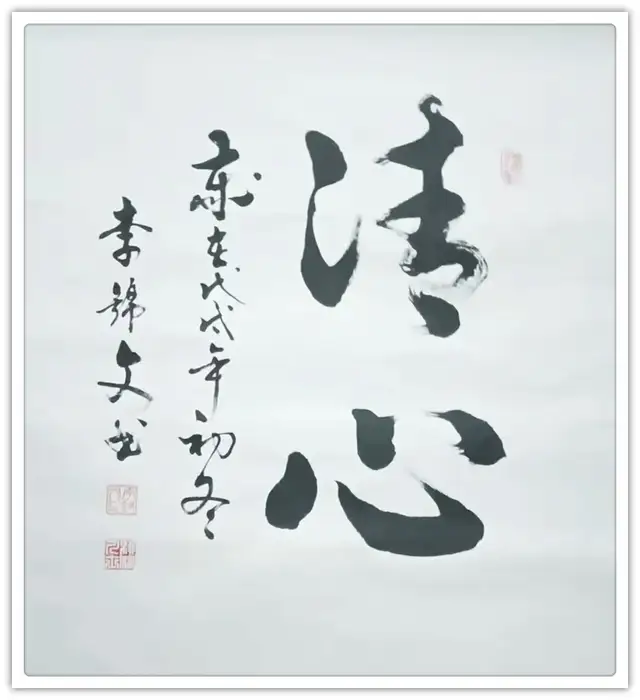 清心
歲在戊戌年初冬
李錦文书